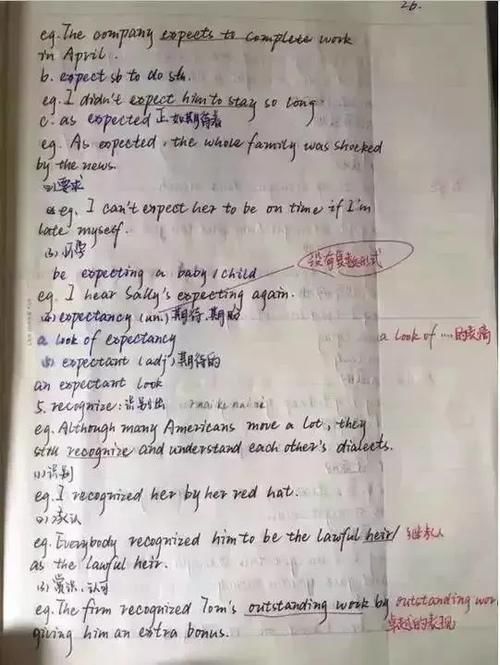 26.
eg. The company expects to complete work
in April.
b. expect sb to do sth.
eg. I didn't expect him to stay so long
c. as expected 正如期待着
eg. As expected, the whole family was shocked
by the news.
(2) 要求
eg. I can't expect her to be on time if I'm
late myself.
(3) 怀孕
be expecting a baby/child
没有复数形式
eg. I hear Sally's expecting again.
(4) expectancy (un.) 期待, 期盼
a look of expectancy
a look of .... 的表情
(5) expectant (adj) 期待的
an expectant look
5. recognize: 识别出
eg. Although many Americans move a lot, they
still recognize and understand each other's dialects.
(1) 识别
eg. I recognized her by her red hat.
(2) 承认
eg. Everybody recognized him to be the lawful heir/ 继承人
as the lawful heir.
(3) 赏识, 认可
eg. The firm recognized Tom's outstanding work by outstanding work
giving him an extra bonus. 卓越的表现